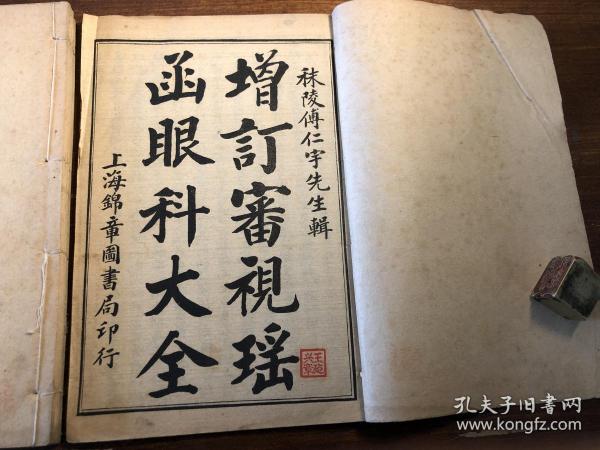 秣陵傅仁宇先生輯
增訂審視瑶
函眼科大全
上海錦章圖書局印行
孔夫子旧书网
www.kongfz.com